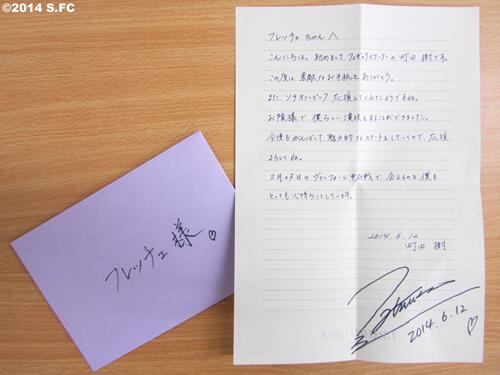 ©2014 S.FC
フレッチェ ちゃんへ
こんにちは。初めまして、フィギュアスケーターの町田樹です。
この度は、素敵なお手紙をありがとう。
また、ソチオリンピック、応援してくれたようですね。
お陰様で、僕らしい演技をすることができました。
今後もがんばって、魅力的なスケートをしていくので、応援
よろしくね。
のヴァンフォーレ甲府戦で、会えるのを僕も
とっても心待ちにしています。
2014.6.12
町田 樹
2014.6.12
KANSAI UNIVERSITY
フレッチェ様